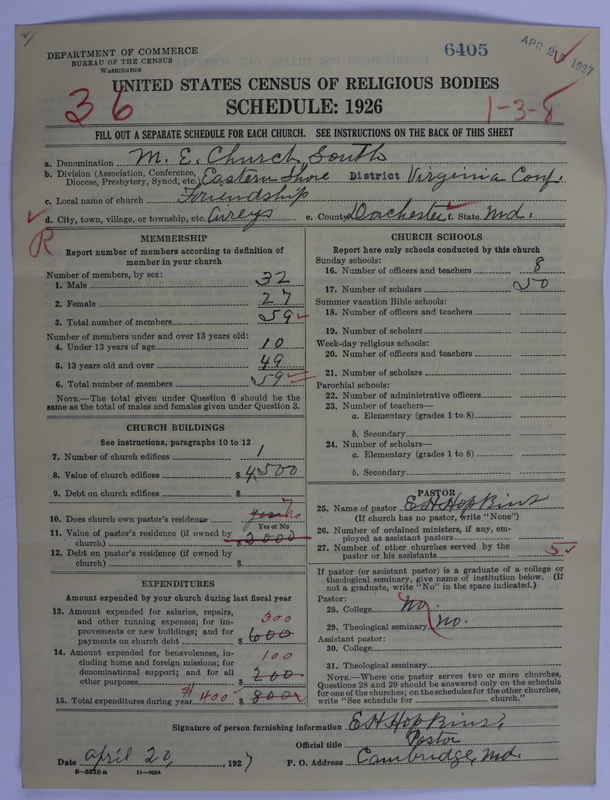 DEPARTMENT OF COMMERCE
BUREAU OF THE CENSUS
WASHINGTON
6405
APR 2 1927
UNITED STATES CENSUS OF RELIGIOUS BODIES
SCHEDULE: 1926
36
1-3-8
FILL OUT A SEPARATE SCHEDULE FOR EACH CHURCH. SEE INSTRUCTIONS ON THE BACK OF THIS SHEET
a. Denomination M. E. Church, South
b. Division (Association, Conference, Diocese, Presbytery, Synod, etc.) Eastern Shore District Virginia Conf.
c. Local name of church Friendship
d. City, town, village, or township, etc. Aireys e. County Dorchester f. State Md.
R
MEMBERSHIP
Report number of members according to definition of
member in your church
Number of members, by sex:
1. Male 32
2. Female 27
3. Total number of members 59
Number of members under and over 13 years old:
4. Under 13 years of age 10
5. 13 years old and over 49
6. Total number of members 59
NOTE.—The total given under Question 6 should be the
same as the total of males and females given under Question 3.
CHURCH BUILDINGS
See instructions, paragraphs 10 to 12
7. Number of church edifices 1
8. Value of church edifices $ 4,500
9. Debt on church edifices $
10. Does church own pastor's residence yes no
Yes or No
11. Value of pastor's residence (if owned by
church) $ 2000
12. Debt on pastor's residence (if owned by
church) $
EXPENDITURES
Amount expended by your church during last fiscal year
13. Amount expended for salaries, repairs,
and other running expenses; for im-
provements or new buildings; and for
payments on church debt $ 600 300
14. Amount expended for benevolences, in-
cluding home and foreign missions; for
denominational support; and for all
other purposes $ 200 100
15. Total expenditures during year $400 $ 800
CHURCH SCHOOLS
Report here only schools conducted by this church
Sunday schools:
16. Number of officers and teachers 8
17. Number of scholars 50
Summer vacation Bible schools:
18. Number of officers and teachers
19. Number of scholars
Week-day religious schools:
20. Number of officers and teachers
21. Number of scholars
Parochial schools:
22. Number of administrative officers
23. Number of teachers—
a. Elementary (grades 1 to 8)
b. Secondary
24. Number of scholars—
a. Elementary (grades 1 to 8)
b. Secondary
PASTOR
25. Name of pastor E H Hopkins
(If church has no pastor, write "None")
26. Number of ordained ministers, if any, em-
ployed as assistant pastors
27. Number of other churches served by the
pastor or his assistants 5
If pastor (or assistant pastor) is a graduate of a college or
theological seminary, give name of institution below. (If
not a graduate, write "No" in the space indicated.)
Pastor:
28. College no
29. Theological seminary no.
Assistant pastor:
30. College
31. Theological seminary
NOTE.—Where one pastor serves two or more churches,
Questions 28 and 29 should be answered only on the schedule
for one of the churches; on the schedules for the other churches,
write "See schedule for church."
Signature of person furnishing information E H Hopkins,
Official title Pastor
Date April 20, 1927 P. O. Address Cambridge, Md.
8-5518 a 11-9054